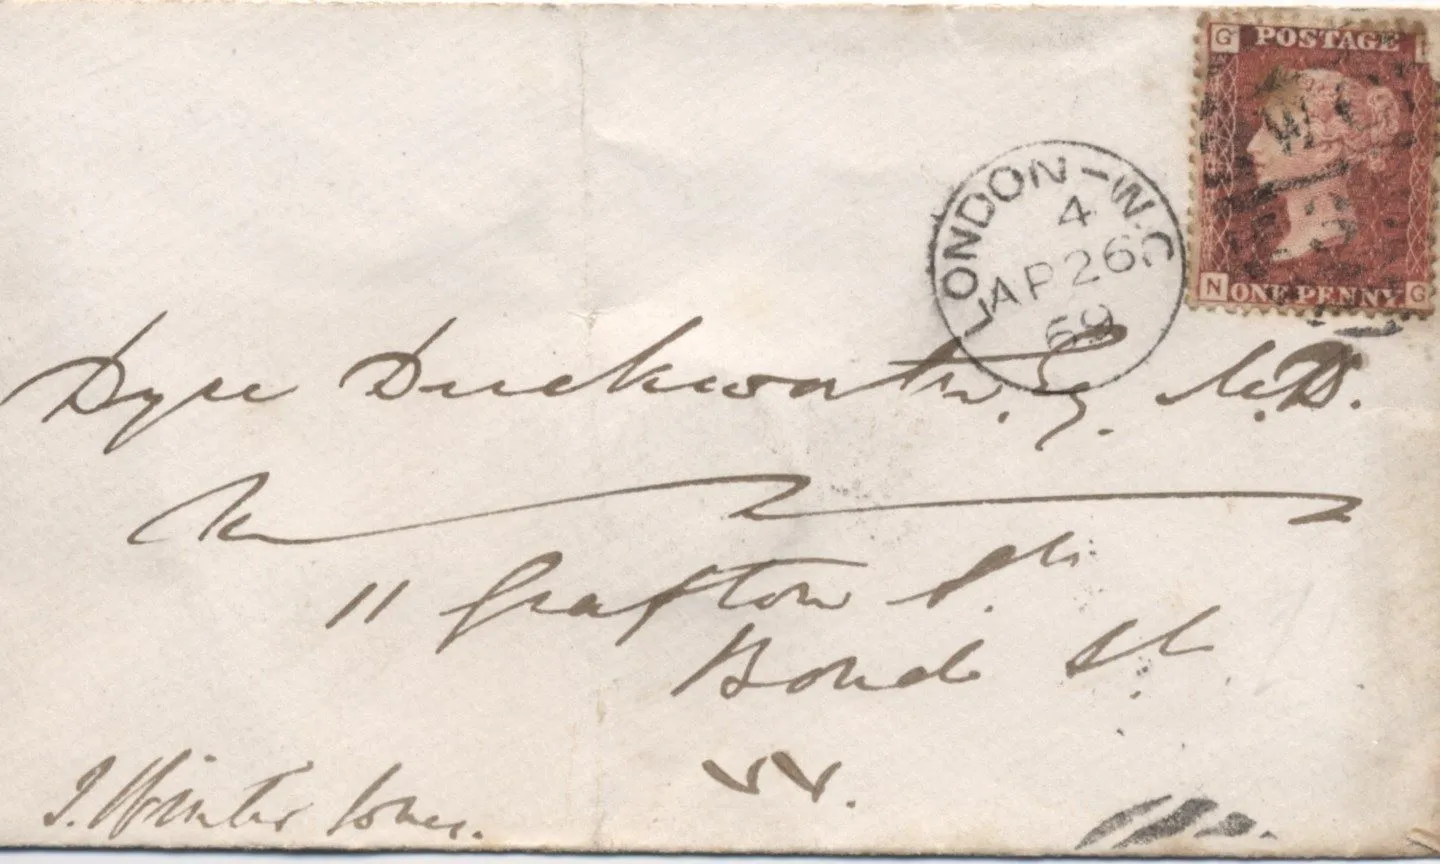 G POSTAGE
W C
N ONE PENNY G
LONDON-W.C
4
AP 26
69
Dyce Duckworth. Esq. M.D.
11 Grafton St.
Bond St.
W.
J. Winter Jones.